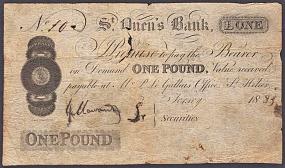 No. 10 St. Ouen's Bank, £ ONE
I Promise to pay the Bearer
on Demand ONE POUND. Value received
payable at Office, St. Helier
Jersey 18
Securities
ONE POUND